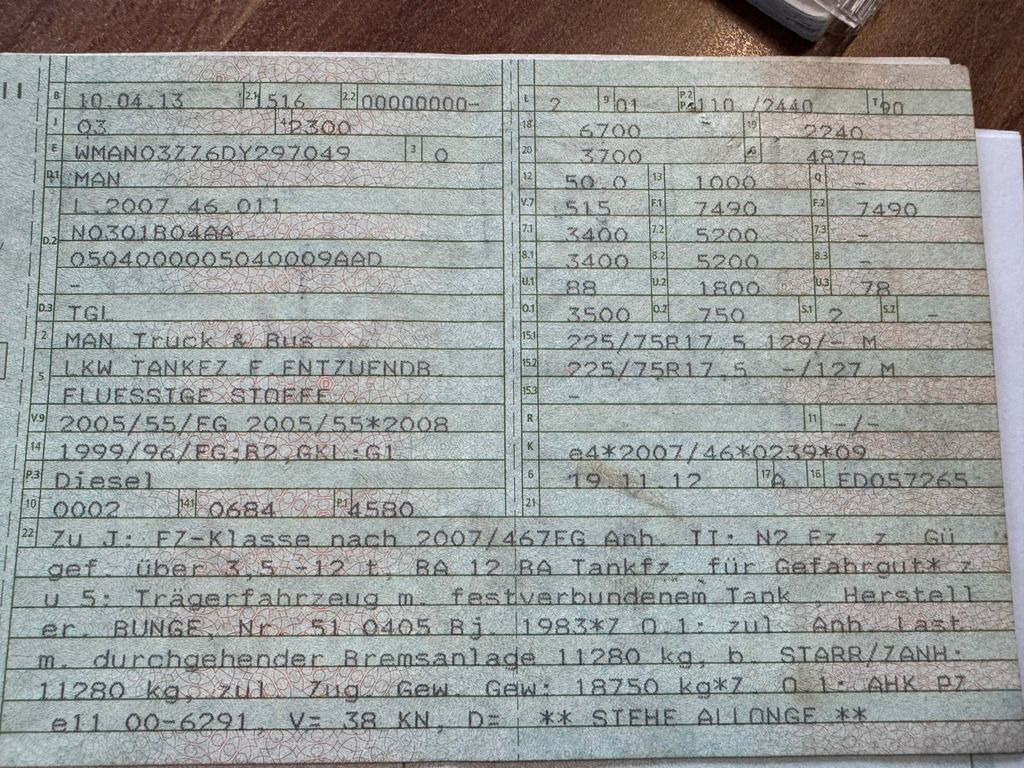 II
B 10.04.13 2.1 516 2.2 00000000-
J 03 4 2300
E WMAN03ZZ6DY297049 3 0
D.1 MAN
L.2007.46.011
D.2 N0301B04AA
0504000005040009AAD
-
D.3 TGL
2 MAN Truck & Bus
5 LKW TANKFZ.F.ENTZUENDB.
FLUESSIGE STOFFE
V.9 2005/55/EG 2005/55*2008
14 1999/96/EG;B2,GKL:G1
P.3 Diesel
10 0002 14.1 0684 P.1 4580
L 2 9 01 P.2 P.4 110 /2440 T 90
18 6700 19 2240
20 3700 G 4878
12 50.0 13 1000 Q -
V.7 515 F.1 7490 F.2 7490
7.1 3400 7.2 5200 7.3 -
8.1 3400 8.2 5200 8.3 -
U.1 88 U.2 1800 U.3 78
O.1 3500 O.2 750 S.1 2 S.2 -
15.1 225/75R17.5 129/- M
15.2 225/75R17.5 -/127 M
15.3 -
R 11 -/-
K e4*2007/46*0239*09
6 19.11.12 17 A 16 ED057265
21
22 Zu J: FZ-Klasse nach 2007/467EG Anh. II: N2 Fz. z. Gü
gef. über 3,5 -12 t, BA 12 BA Tankfz. für Gefahrgut* z
u 5: Trägerfahrzeug m. festverbundenem Tank Herstell
er. BUNGE, Nr. 51 0405 Bj. 1983*Z O.1: zul. Anh. Last
m. durchgehender Bremsanlage 11280 kg, b. STARR/ZANH:
11280 kg, zul. Zug. Gew. Gew: 18750 kg*Z. O.1: AHK PZ
e11 00-6291, V= 38 KN, D= ** SIEHE ALLONGE **